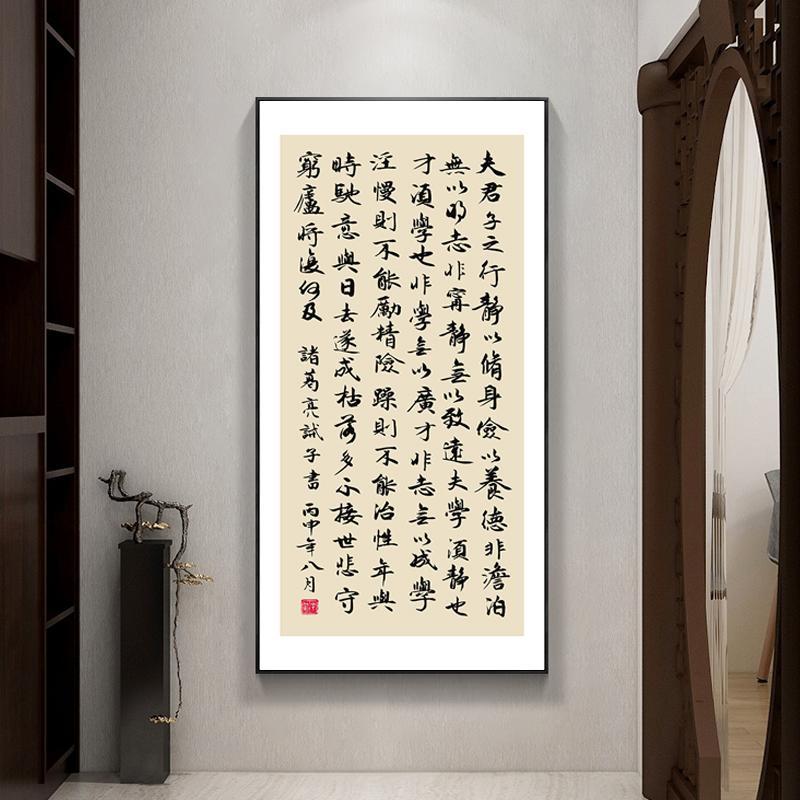 夫君子之行靜以脩身儉以養德非澹泊
無以明志非寧靜無以致遠夫學須靜也
才須學也非學無以廣才非志無以成學
淫慢則不能勵精險躁則不能治性年與
時馳意與日去遂成枯落多不接世悲守
窮廬將復何及 諸葛亮誡子書 丙申年八月